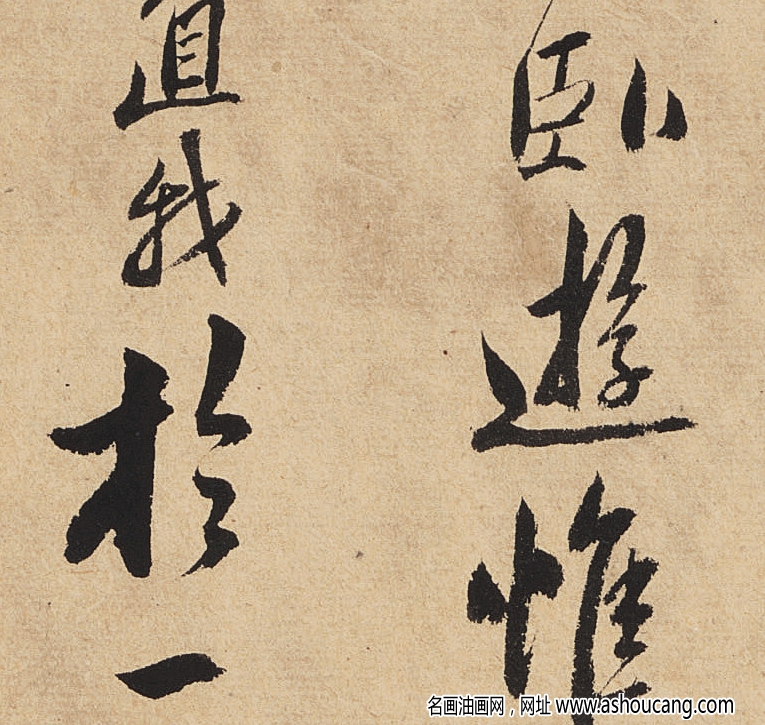 卧遊惟
我於一
名画油画网，网址 www.ashoucang.com